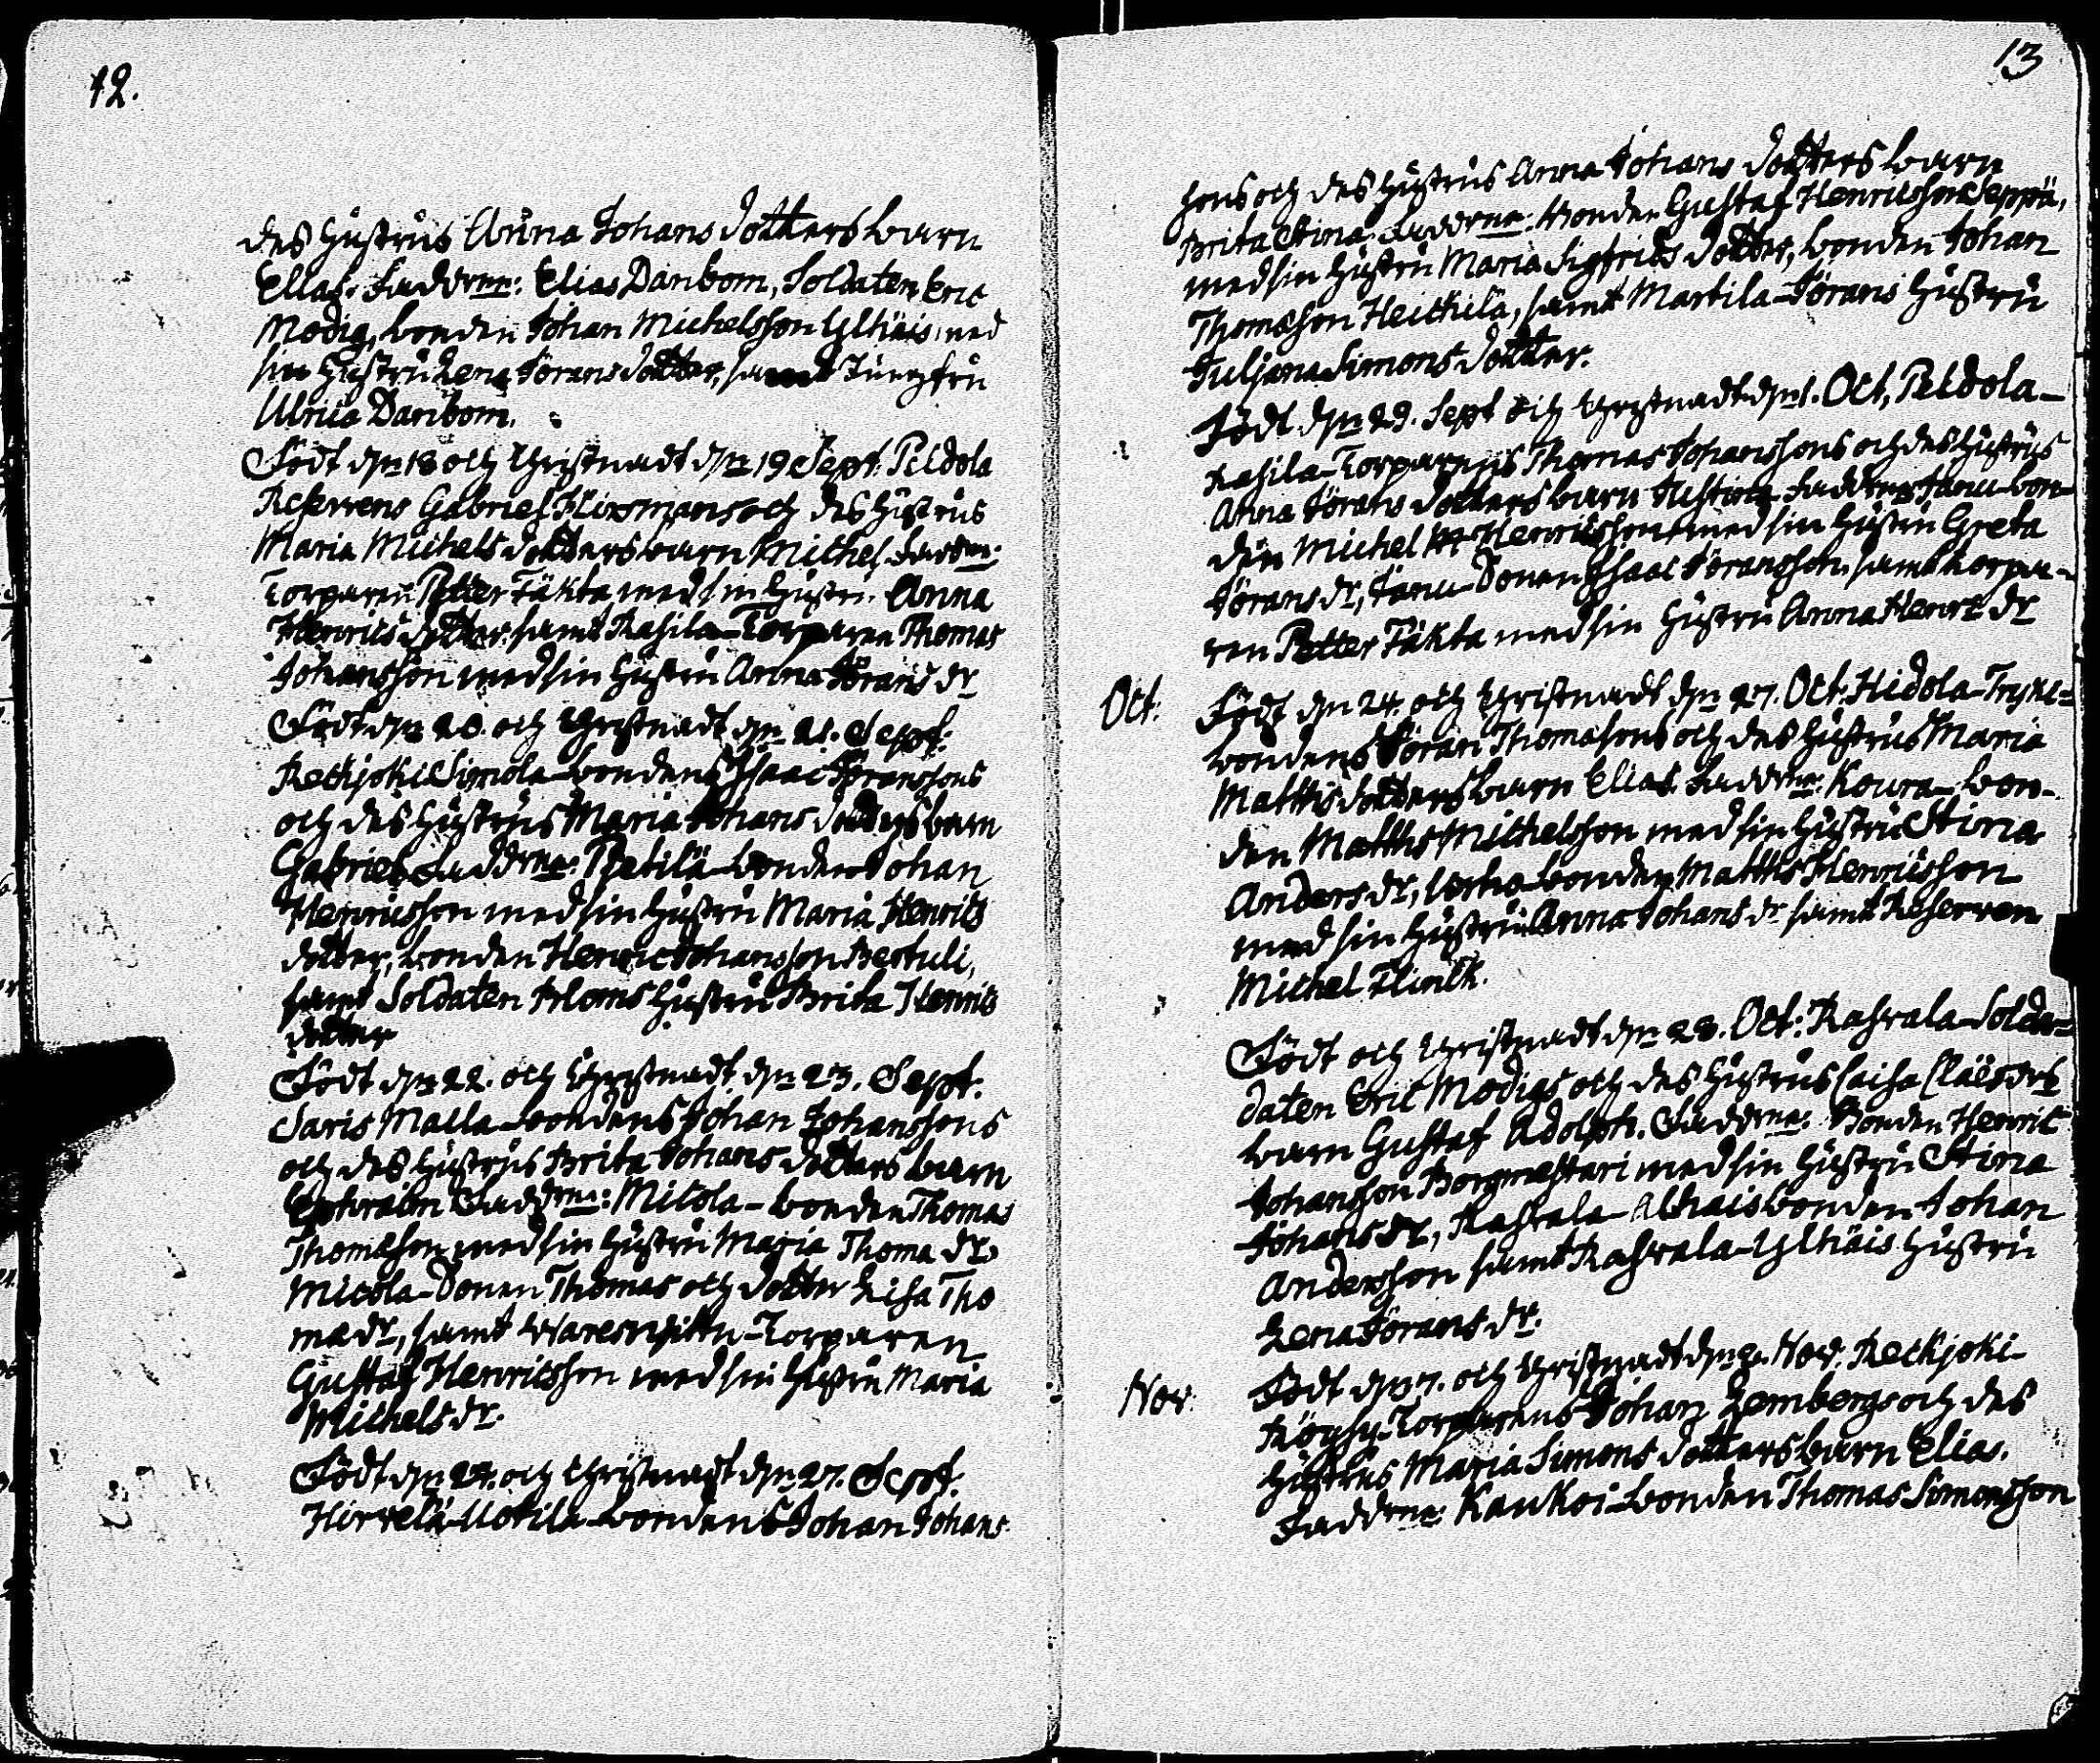 12.
des hustrus Anna Johans dotters barn
Elias. Faddrne: Elias Danbom, Soldaten Eric
Modig, bonden Johan Michelsson Ylhäis med
sin hustru Lena Jörans dotter, samt Jungfru
Ulrica Danbom.
Födt d. 18 och Christnadt d. 19 Sept. Peldola
Reserrens Gabriel Flinkmans och des hustrus
Maria Michels dotters barn Michel. Faddrne:
Torparen Petter Täkta med sin hustru Anna
Henrics dotter, samt Rasila-Torparen Thomas
Johansson med sin hustru Anna Jörans dr
Födt d. 20. och Christnadt d. 21. Sept.
Reckjoki Simola-bondens Isaac Jöranssons
och des hustrus Maria Johans dotters barn
Gabriel. Faddrne: Pietilä-bonden Johan
Henricsson med sin hustru Maria Henrics
dotter, bonden Henric Johansson Bertuli,
samt Soldaten Bloms hustru Brita Henrics
dotter
Födt d. 22. och Christnadt d. 23. Sept.
Saris Malla-bondens Johan Johanssons
och des hustrus Brita Johans dotters barn
Ephraim Faddrne: Micola-bonden Thomas
Thomasson med sin hustru Maria Thoma dr,
Micola-Donen Thomas och dotter Lisa Tho
mæ dr, samt Torparen
Gustaf Henricsson med sin hustru Maria
Michels dr.
Födt d. 27. och Christnadt d. 27. Sept.
Hirvelä-Uotila-bondens Johan Johans
13
sons och des hustrus Anna Johans dotters barn
Brita Stina. Faddrne: Bonden Gustaf Henricsson Seppä,
med sin hustru Maria Sigfrids dotter, bonden Johan
Thomasson Heickilä, samt Martila-Jörans hustru
Juljana Simons dotter.
Födt d. 29. Sept och Christnadt d. 1. Oct, Peldola-
Rasila-Torparens Thomas Johanssons och des hustrus
Anna Jörans dotters barn Justina. Faddrne Tanu-bon-
den Michel Henricsson med sin hustru Greta
Jörans dr, Tanu-Donen Isaac Jöransson, samt torpa-
ren Petter Täkta med sin hustru Anna Henrs dr
Oct: Födt d. 24. och Christnadt d. 27. Oct: Hidola-
bondens Jöran Thomasons och des hustrus Maria
Matths dotters barn Elias. Faddrne: Koura-bon-
den Matths Michelsson med sin hustru Stina
Anders dr, Uotio-bonden Matths Henricsson
med sin hustru Anna Johans dr samt Reserven
Michel Flinck.
Födt och Christnadt d. 28. Oct: Rahvala-Solda-
daten Eric Modigs och des hustrus Caisa Claës drs
barn Gustaf Adolph. Faddrne: Bonden Henric
Johansson Borgmestari med sin hustru Stina
Johans dr, Rahvala-Alhais bonden Johan
Andersson samt Rahvala-Ylhäis hustru
Lena Jörans dr.
Nov. Födt d. 7. och Christnadt d. 9. Nov. Reckjoki-
Torparens Johan Lembergs och des
hustrus Maria Simons dotters barn Elias.
Faddrne: Kaukoi-bonden Thomas Simonsson